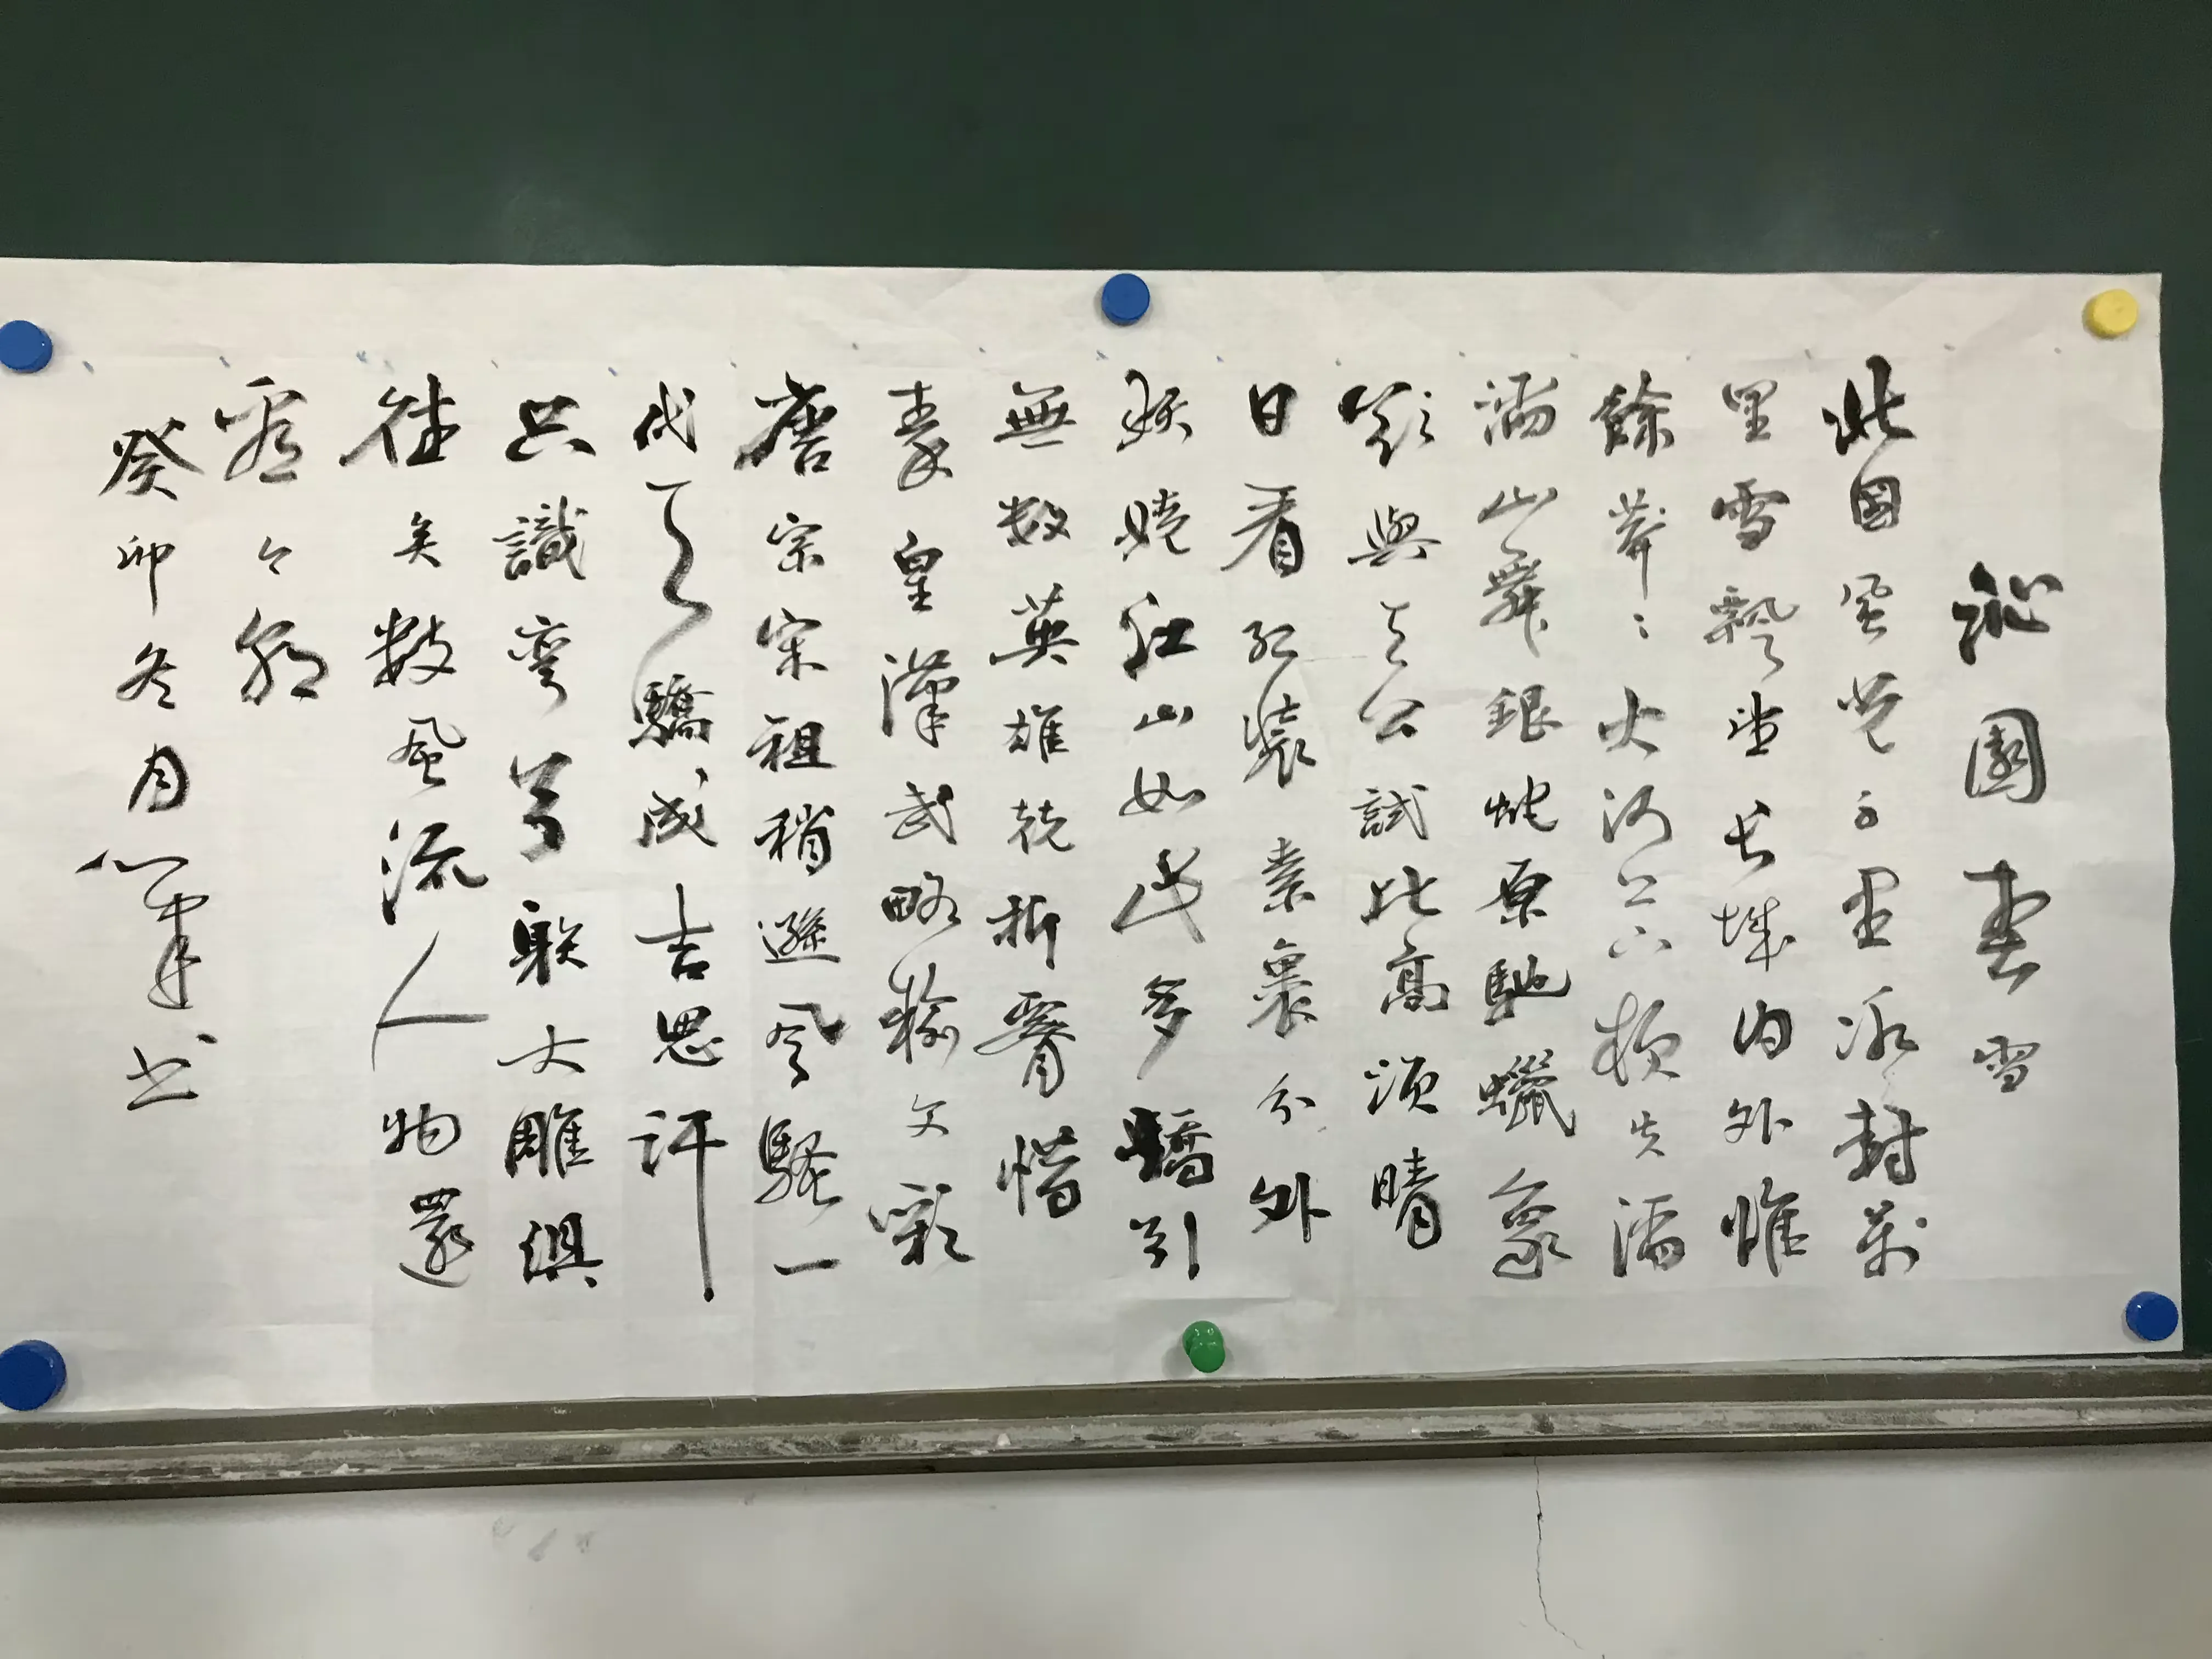 沁園春雪
北國風光千里冰封萬
里雪飄望長城內外惟
餘莽〻大河上下頓失滔
滔山舞銀蛇原馳蠟象
欲與天公試比高須晴
日看紅裝素裹分外
妖嬈江山如此多嬌引
無數英雄競折腰惜
秦皇漢武略輸文彩
唐宗宋祖稍遜風騷一
代天驕成吉思汗
只識彎弓射大雕俱
往矣數風流人物還
看今朝
癸卯冬月書